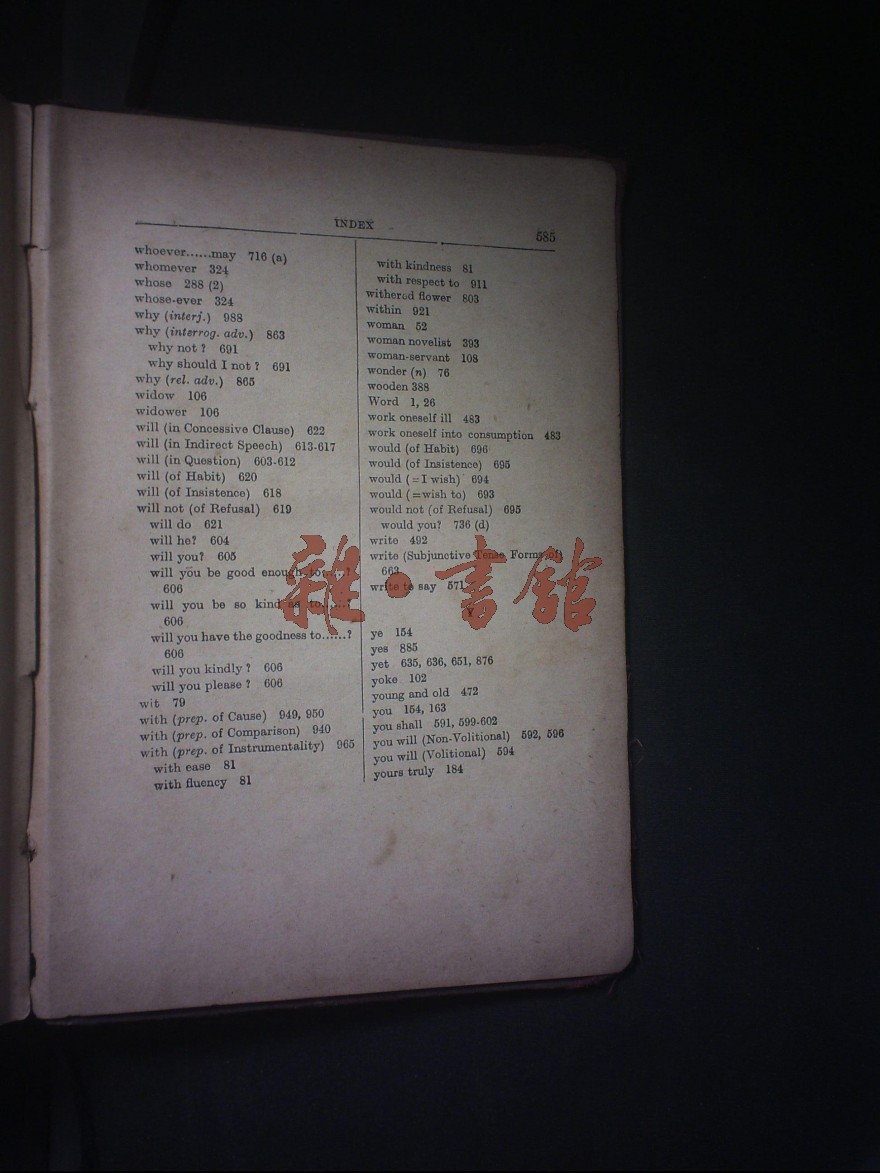 INDEX
585
whoever......may 716 (a)
whomever 324
whose 288 (2)
whose-ever 324
why (interj.) 988
why (interrog. adv.) 863
why not ? 691
why should I not ? 691
why (rel. adv.) 865
widow 106
widower 106
will (in Concessive Clause) 622
will (in Indirect Speech) 613-617
will (in Question) 603-612
will (of Habit) 620
will (of Insistence) 618
will not (of Refusal) 619
will do 621
will he? 604
will you? 605
will you be good enough to......?
606
will you be so kind as to......?
606
will you have the goodness to......?
606
will you kindly ? 606
will you please ? 606
wit 79
with (prep. of Cause) 949, 950
with (prep. of Comparison) 940
with (prep. of Instrumentality) 965
with ease 81
with fluency 81
with kindness 81
with respect to 911
withered flower 803
within 921
woman 52
woman novelist 393
woman-servant 108
wonder (n) 76
wooden 388
Word 1, 26
work oneself ill 483
work oneself into consumption 483
would (of Habit) 696
would (of Insistence) 695
would (=I wish) 694
would (=wish to) 693
would not (of Refusal) 695
would you? 736 (d)
write 492
write (Subjunctive Tense Forms of)
663
write to say 571
Y
ye 154
yes 885
yet 635, 636, 651, 876
yoke 102
young and old 472
you 154, 163
you shall 591, 599-602
you will (Non-Volitional) 592, 596
you will (Volitional) 594
yours truly 184
雜·書館